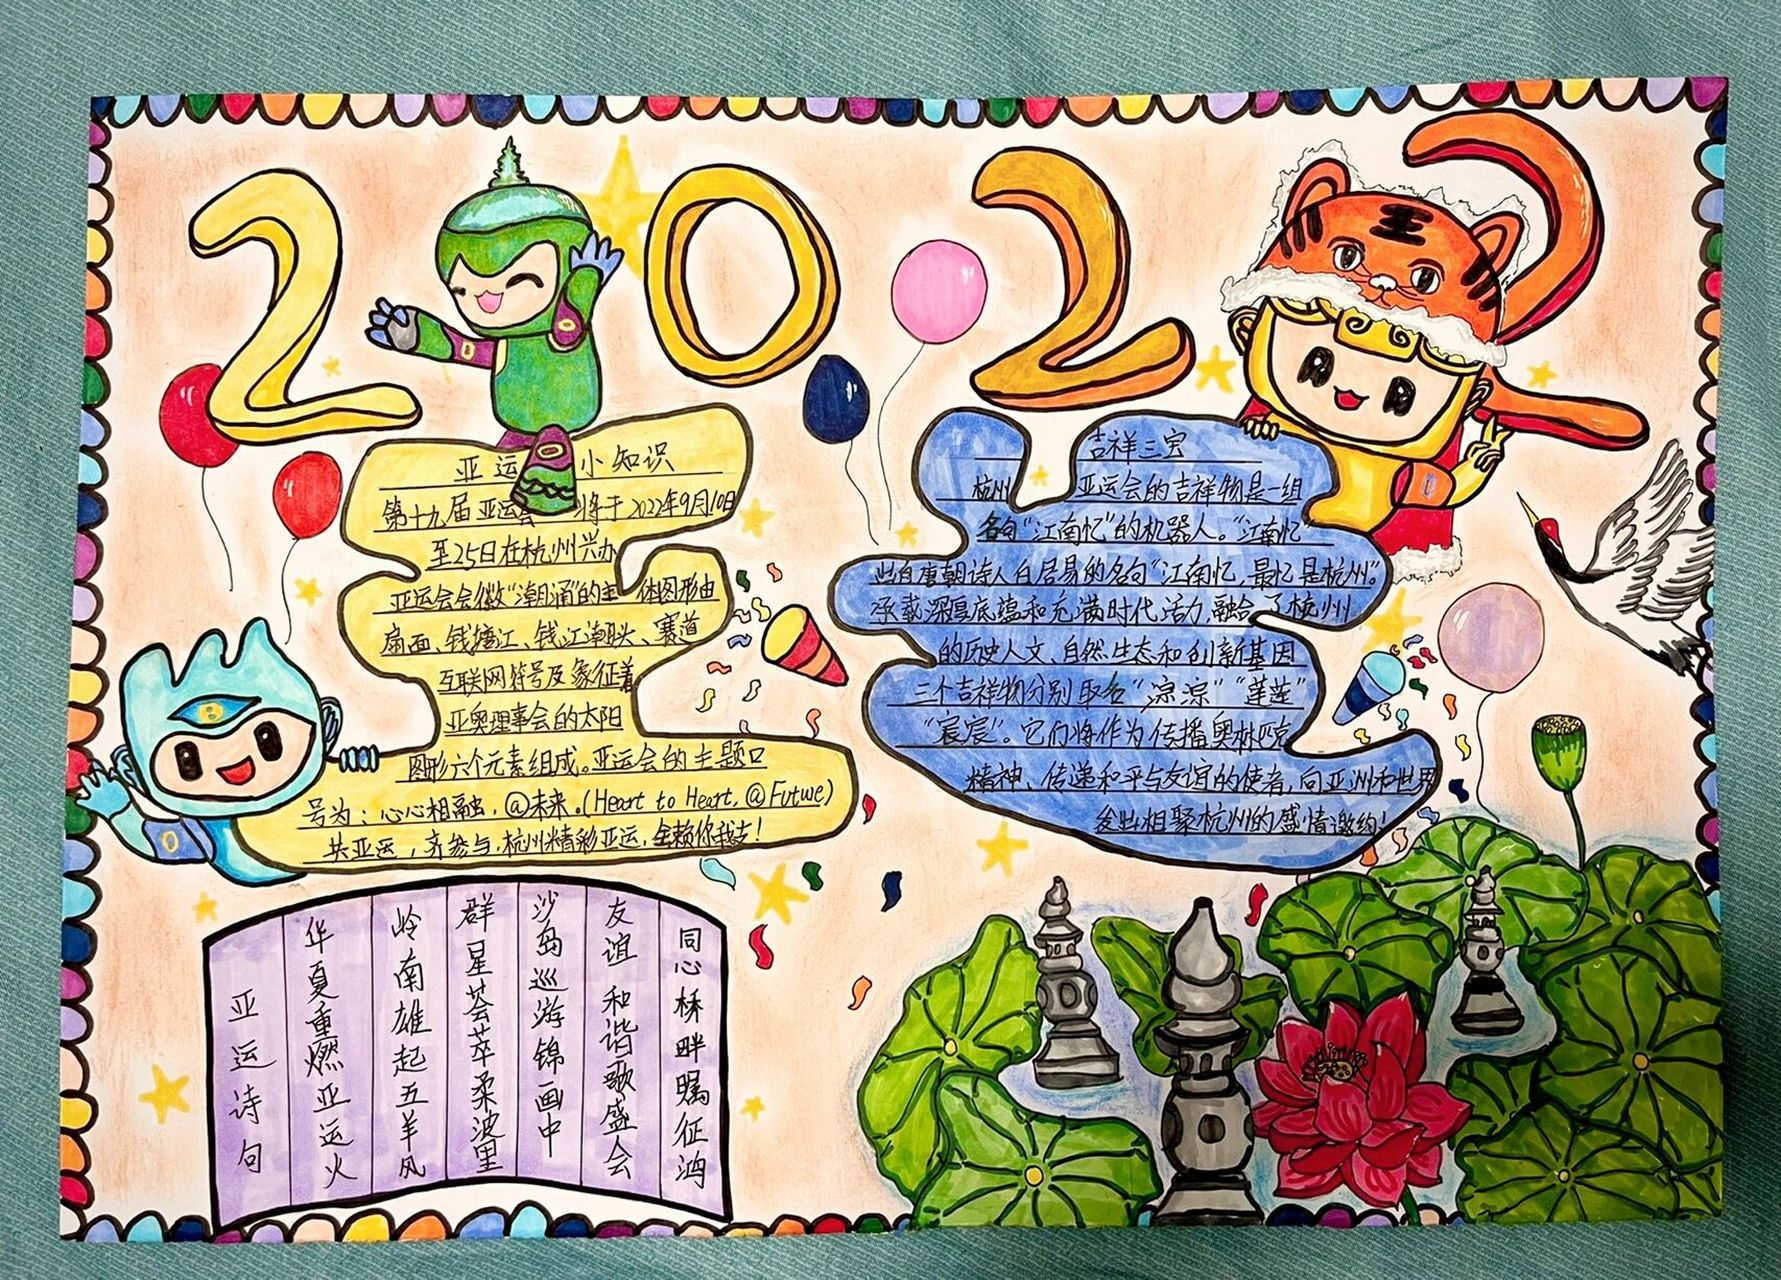 2022
亚运小知识
第十九届亚运会将于2022年9月10日
至25日在杭州兴办
亚运会会徽“潮涌”的主体图形由
扇面、钱塘江、钱江潮头、赛道
互联网符号及象征着
亚奥理事会的太阳
图形六个元素组成。亚运会的主题口
号为：心心相融，@未来。(Heart to Heart, @Future)
共亚运，齐参与，杭州精彩亚运，全赖你我支！
吉祥三宝
杭州亚运会的吉祥物是一组
名自“江南忆”的机器人。“江南忆”
出自唐朝诗人白居易的名句“江南忆，最忆是杭州”。
承载深厚底蕴和充满时代活力，融合了杭州
的历史人文、自然生态和创新基因
三个吉祥物分别取名“琮琮”“莲莲”
“宸宸”。它们将作为传播奥林匹克
精神、传递和平与友谊的使者，向亚洲和世界
发出相聚杭州的盛情邀约！
亚运诗句
华夏重燃亚运火
岭南雄起五羊风
群星荟萃柔波里
沙岛巡游锦画中
友谊和谐歌盛会
同心桥畔瞩征鸿